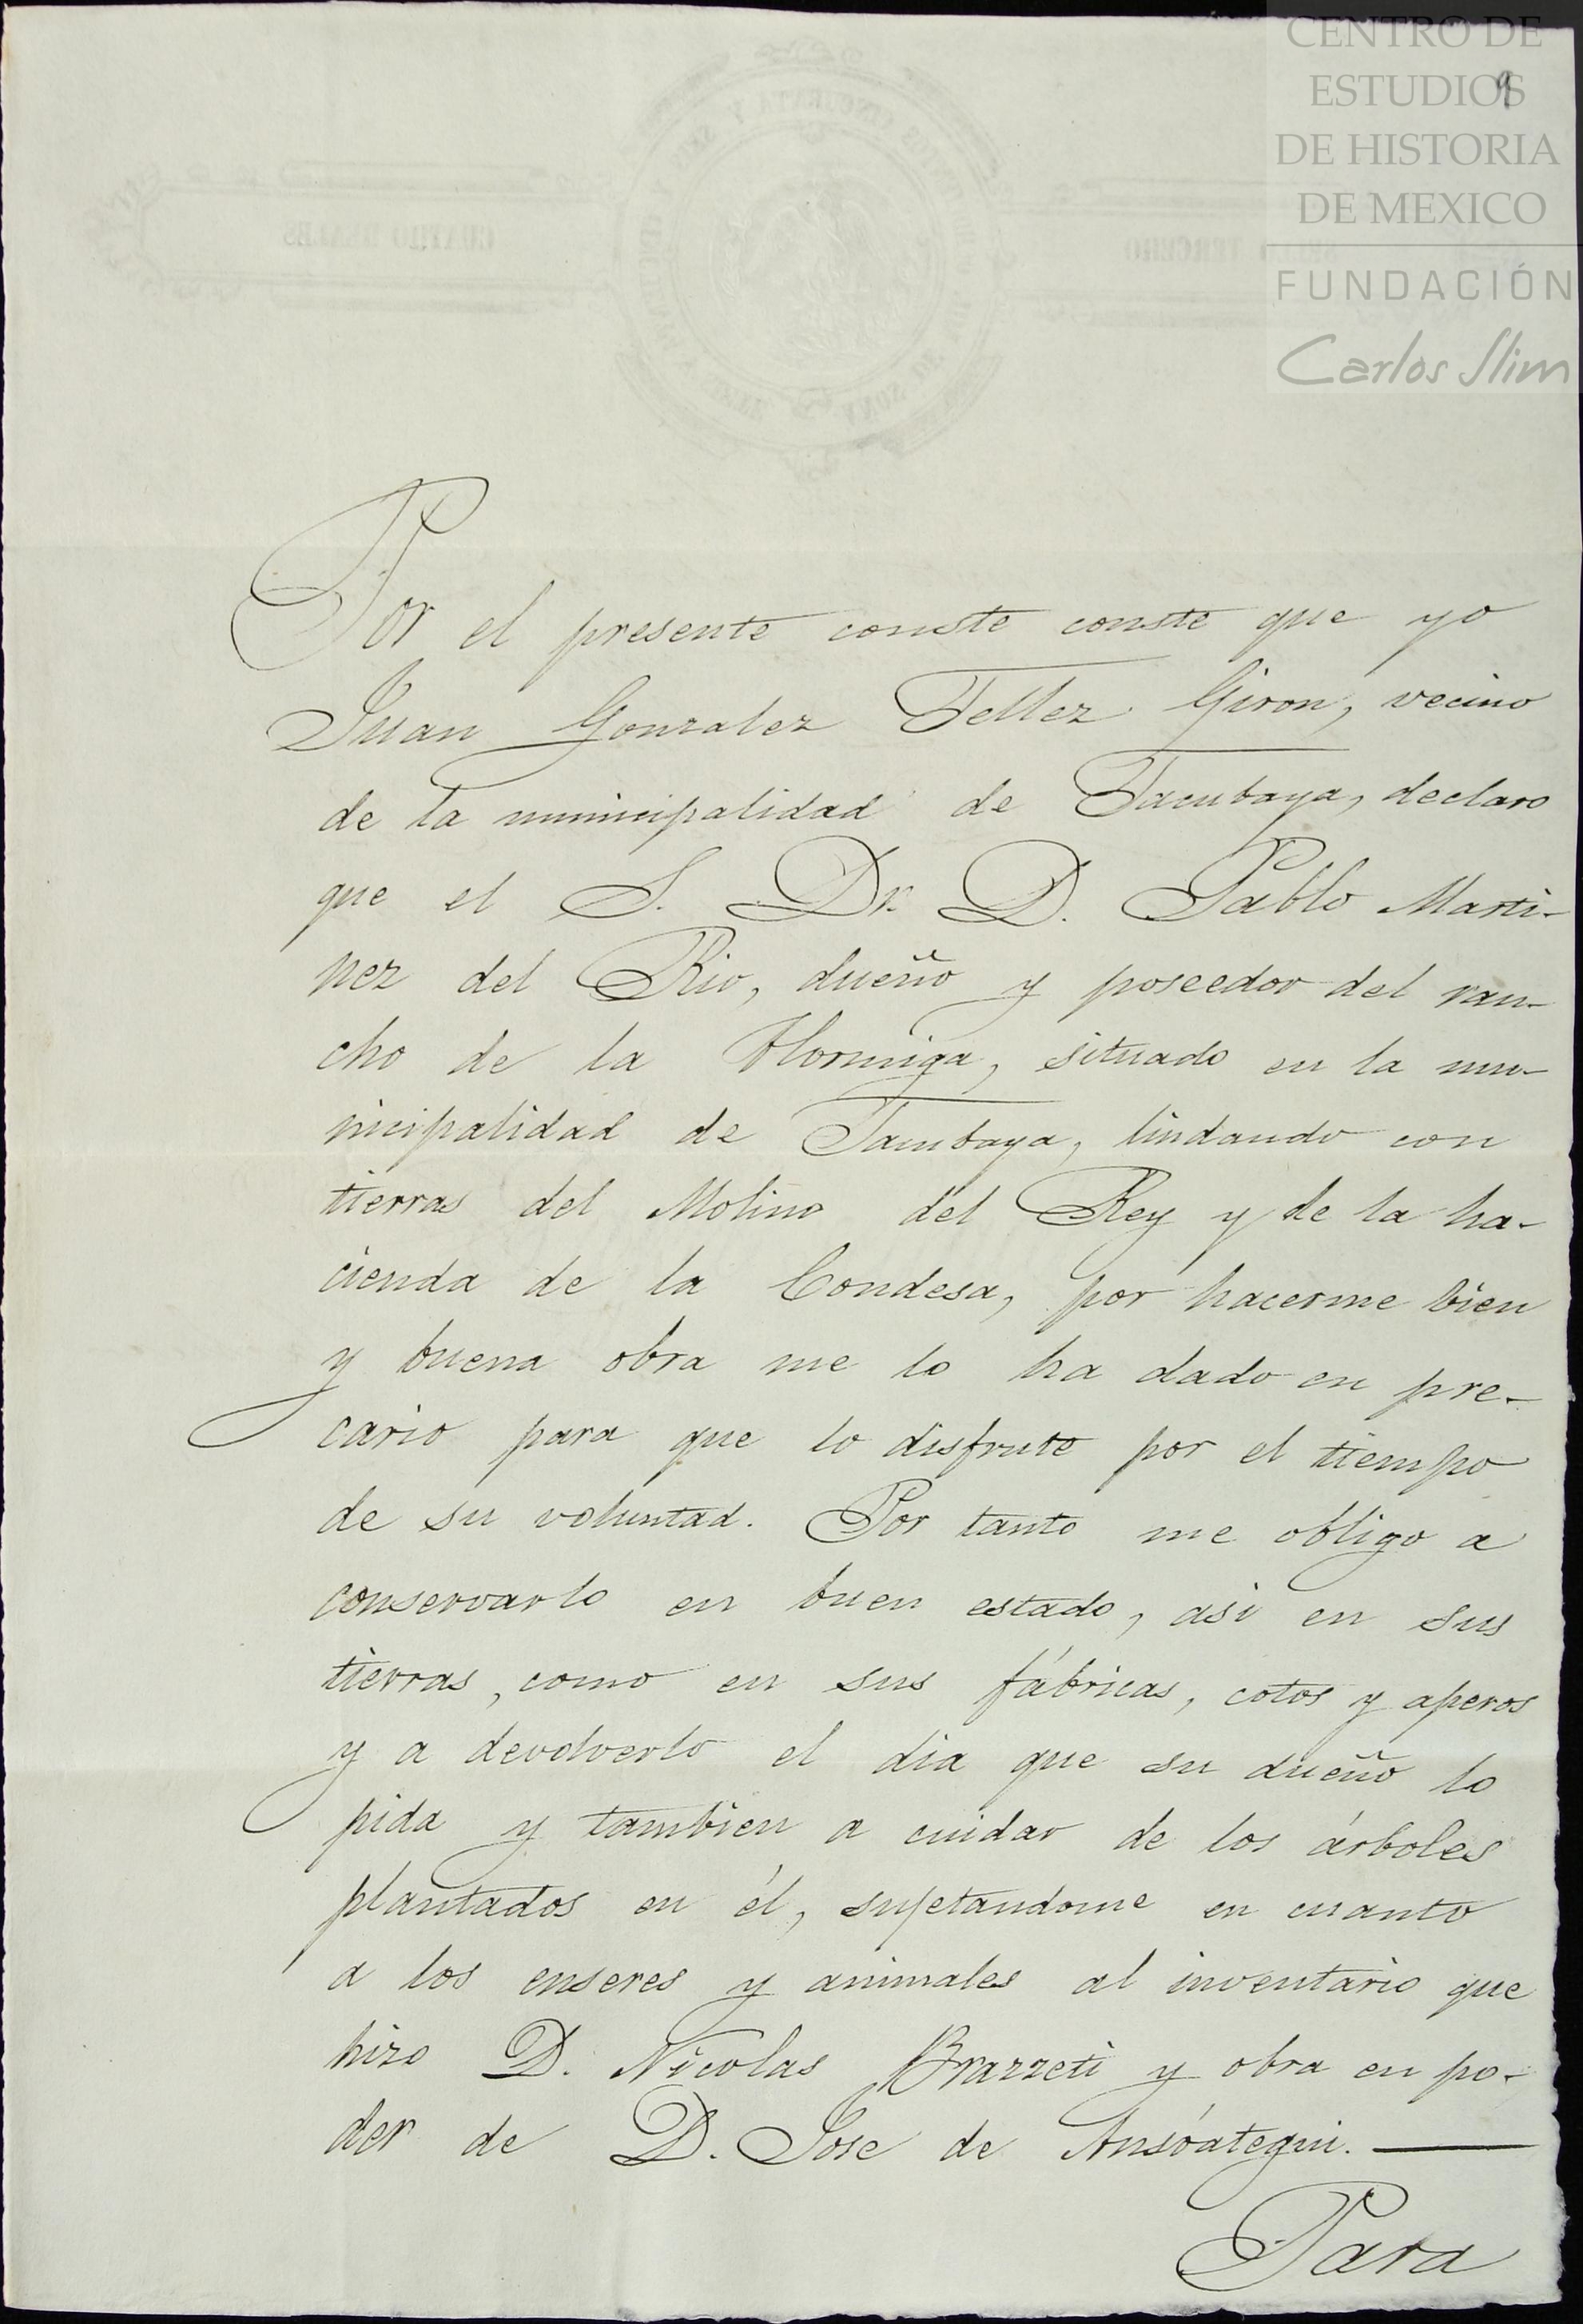 CENTRO DE
ESTUDIOS
DE HISTORIA
DE MEXICO
FUNDACIÓN
Carlos Slim
9
CUATRO REALES
TERCERO
Por el presente conste conste que yo
Juan Gonzalez Tellez Giron, vecino
de la municipalidad de Tacubaya, declaro
que el S. Dr. D. Pablo Marti-
nez del Rio, dueño y poseedor del ran-
cho de la Hormiga, situado en la mu-
nicipalidad de Tacubaya, lindando con
tierras del Molino del Rey y de la ha-
cienda de la Condesa, por hacerme bien
y buena obra me lo ha dado en pre-
cario para que lo disfrute por el tiempo
de su voluntad. Por tanto me obligo a
conservarlo en buen estado, asi en sus
tierras, como en sus fábricas, cotos y aperos
y a devolverlo el dia que su dueño lo
pida y tambien a cuidar de los árboles
plantados en él, sujetandome en cuanto
a los enseres y animales al inventario que
hizo D. Nicolas Brazzeti y obra en po-
der de D. Jose de Ansóategui.
Para